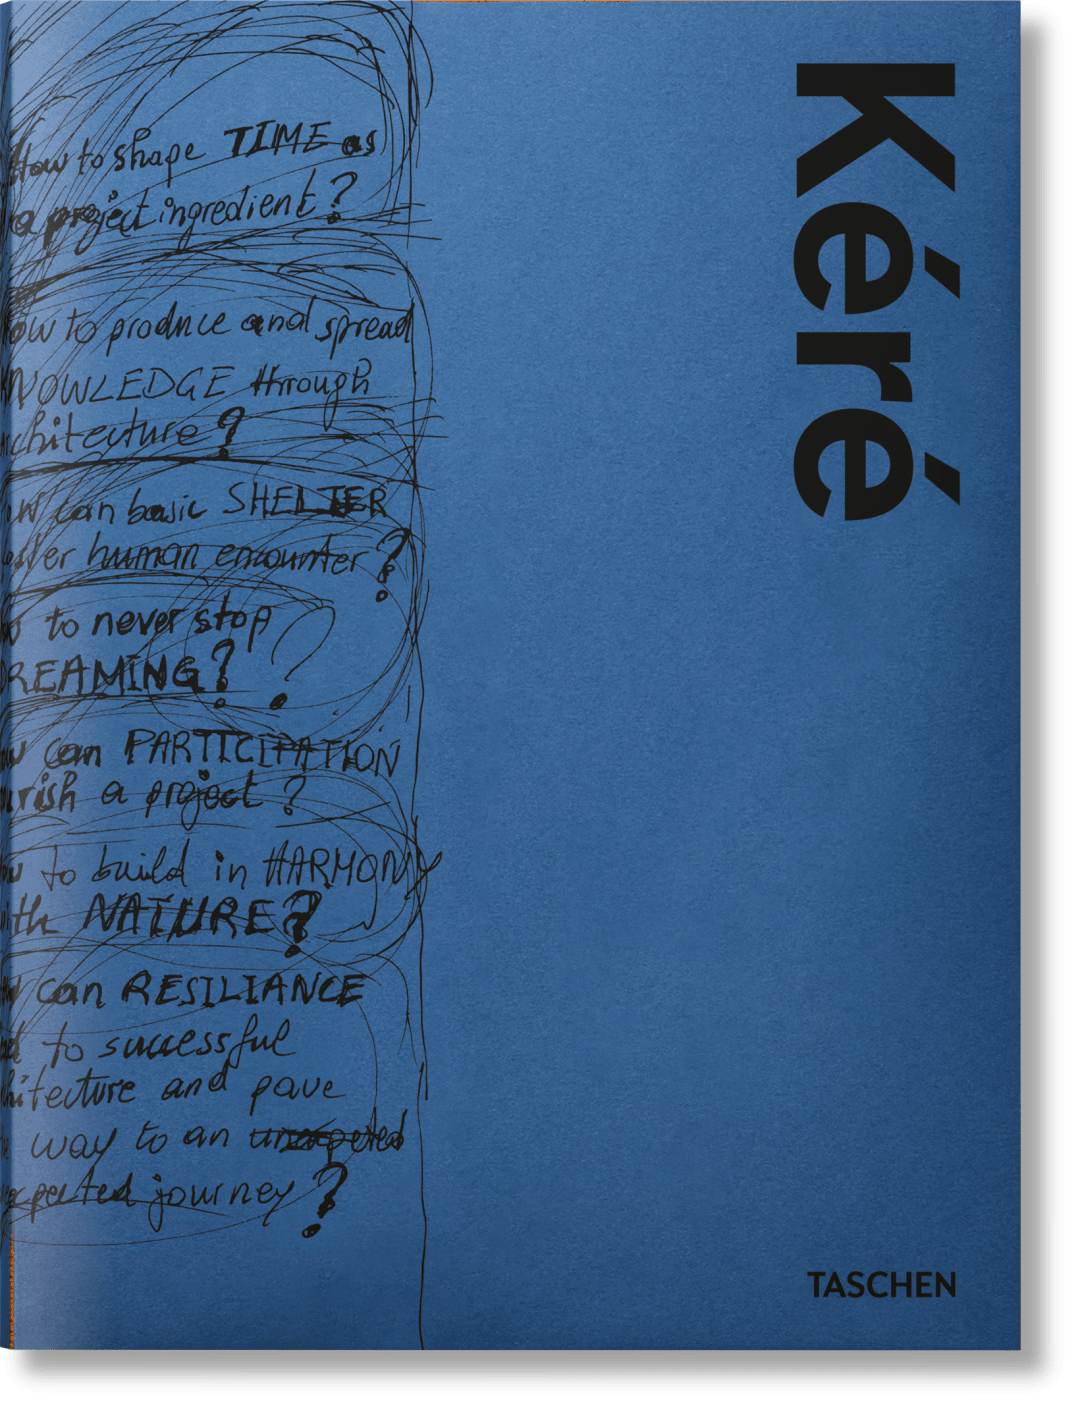 Kéré
How to shape TIME as
a project ingredient?
ow to produce and spread
NOWLEDGE through
chitecture?
w can basic SHELTER
ster human encounter?
to never stop
REAMING? ?
w can PARTICIPATION
urish a project?
w to build in HARMONY
ith NATURE?
can RESILIANCE
to successful
hitecture and pave
way to an unexpeted
expected journey?
TASCHEN